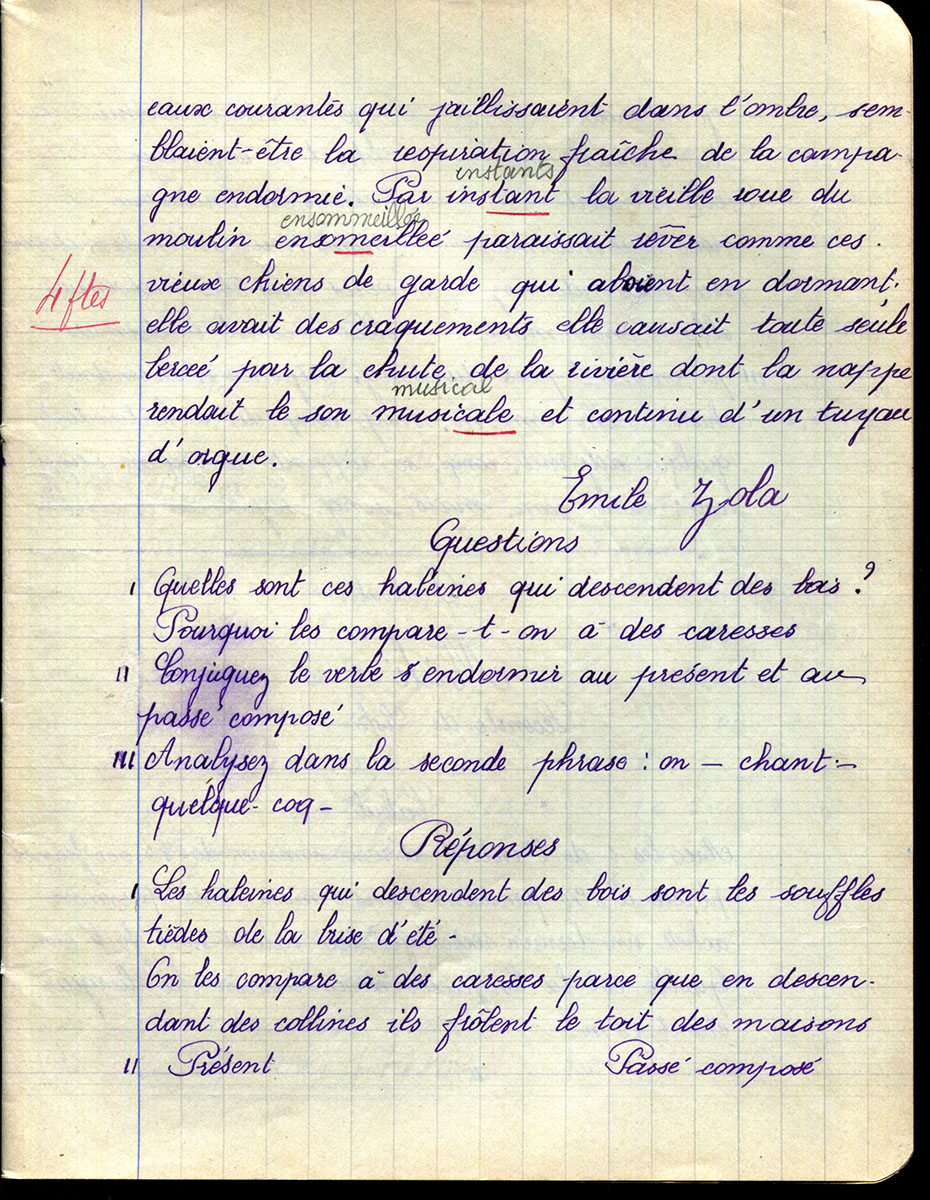 eaux courantes qui jaillissaient dans l'ombre, sem-
blaient-être la respiration fraîche de la campa-
instants
gne endormie. Par instant la vieille roue du
ensommeillée
moulin ensomeilleé paraissait rêver comme ces
vieux chiens de garde qui aboient en dormant.
4 ftes
elle avait des craquements elle causait toute seule
berceé par la chute de la rivière dont la nappe
musical
rendait le son musicale et continu d'un tuyau
d'orgue.
Emile Zola
Questions
I Quelles sont ces haleines qui descendent des bois ?
Pourquoi les compare-t-on à des caresses
II Conjuguez le verbe s'endormir au présent et au
passé composé
III Analysez dans la seconde phrase : on - chant -
quelque - coq -
Réponses
I Les haleines qui descendent des bois sont les souffles
tièdes de la brise d'été -
On les compare à des caresses parce que en descen-
dant des collines ils frôlent le toit des maisons
II Présent Passé composé